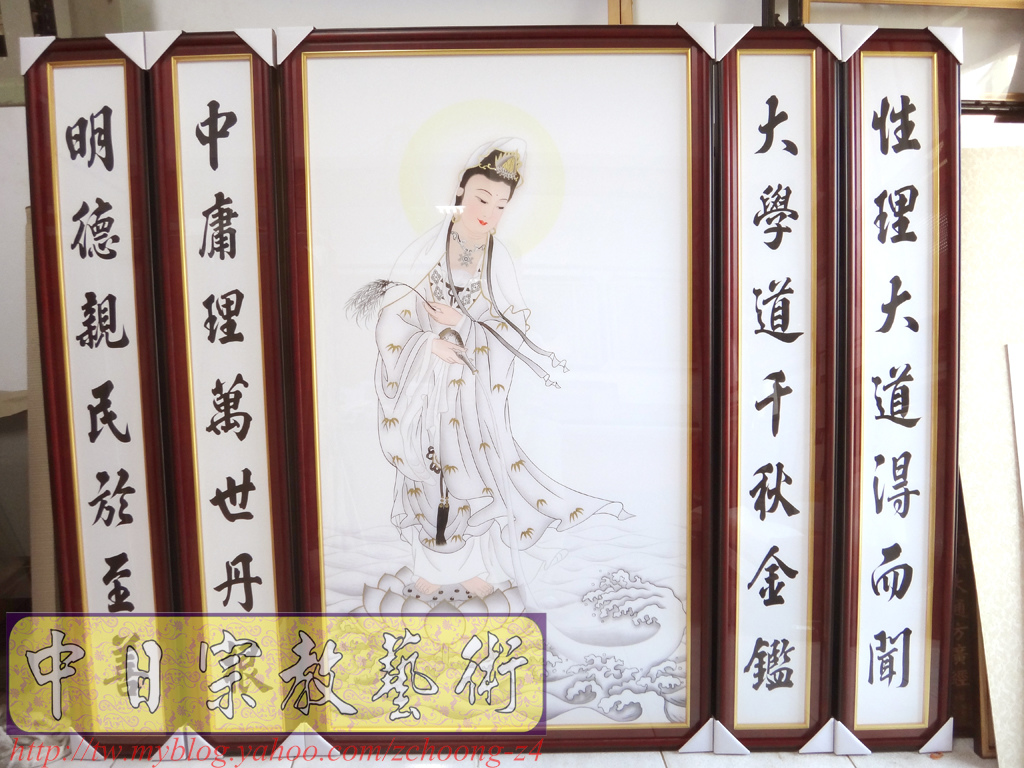 性理大道得而聞
大學道千秋金鑑
中庸理萬世丹
明德親民於至善
中日宗教藝術
http://tw.myblog.yahoo.com/zchoong-z4